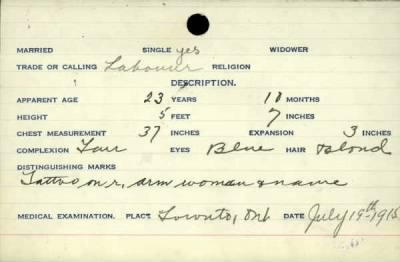 MARRIED SINGLE yes WIDOWER
TRADE OR CALLING Labourer RELIGION
DESCRIPTION.
APPARENT AGE 23 YEARS 10 MONTHS
HEIGHT 5 FEET 7 INCHES
CHEST MEASUREMENT 37 INCHES EXPANSION 3 INCHES
COMPLEXION Fair EYES Blue HAIR Blond
DISTINGUISHING MARKS
Tattoo on r, arm woman & name
MEDICAL EXAMINATION. PLACE Toronto, Ont DATE July 19th 1915